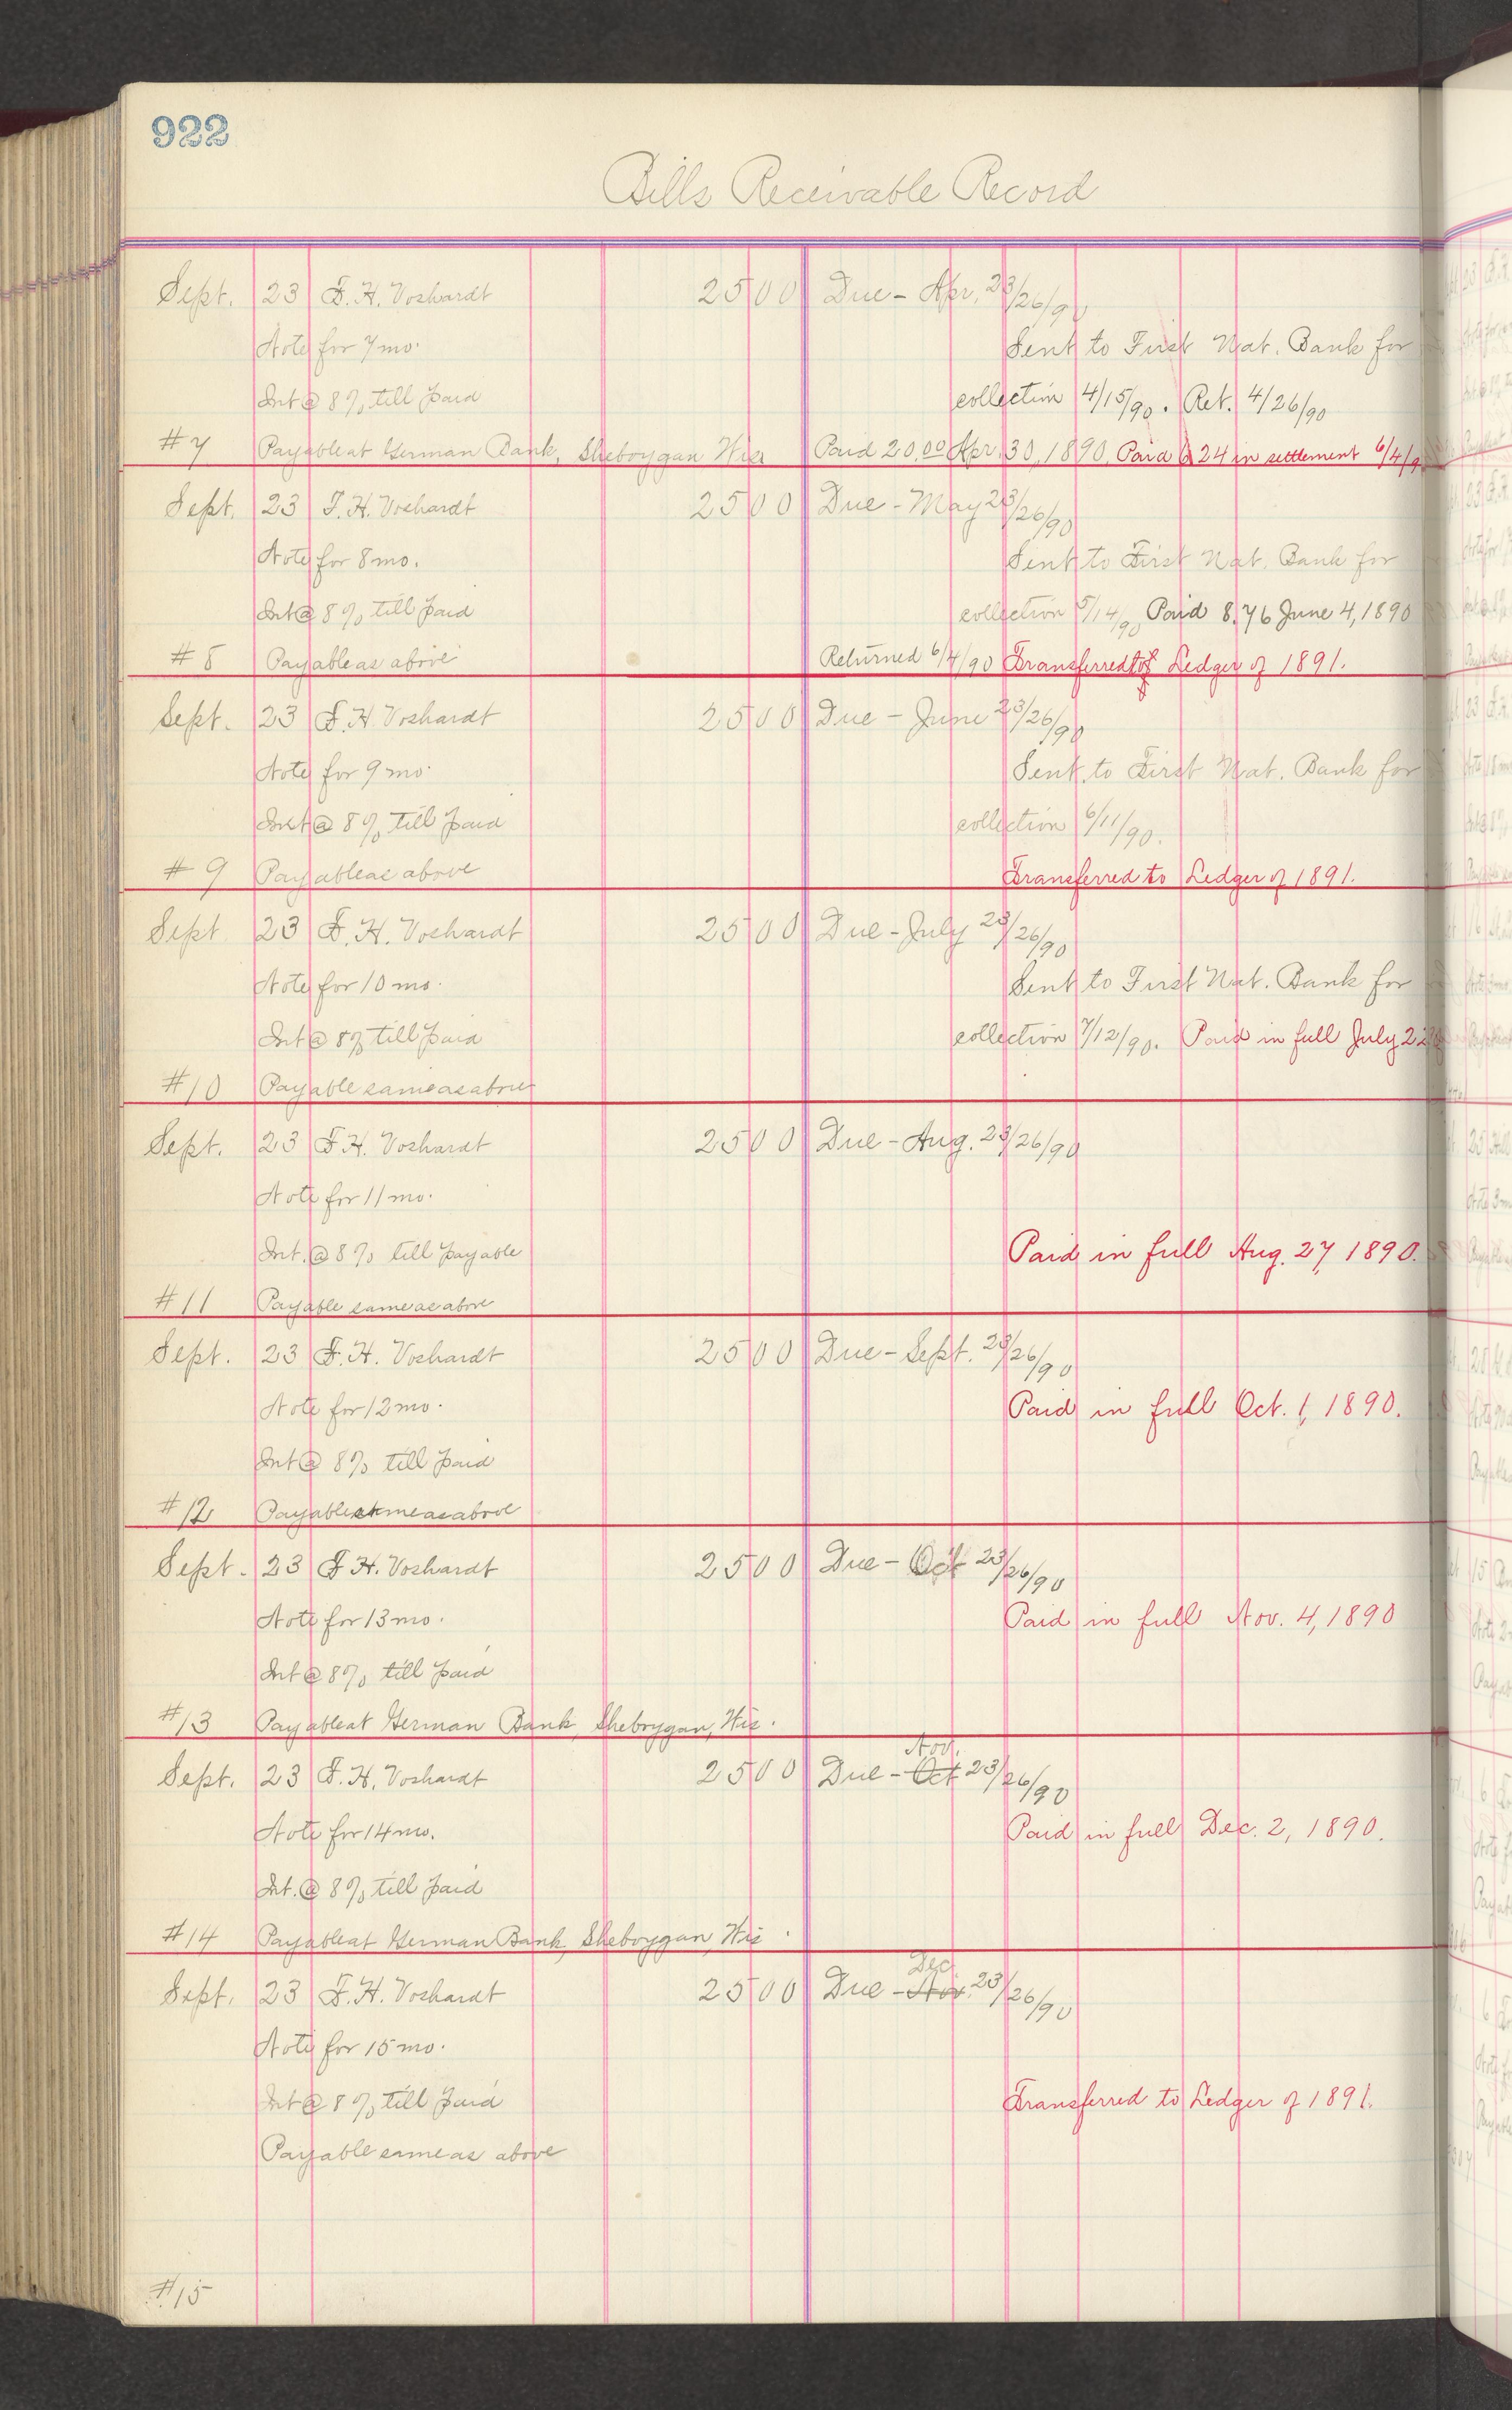 922
Bills Receivable Record
Sept. 23 F. H. Voshardt 25 00 Due - Apr. 23/26/90
Note for 7 mo. Sent to First Nat. Bank for
Int @ 8% till paid collection 4/15/90. Ret. 4/26/90
#7 Payable at German Bank, Sheboygan Wis Paid 20.00 Apr. 30, 1890. Paid 24 in settlement 6/4/9
Sept. 23 F. H. Voshardt 25 00 Due - May 23/26/90
Note for 8 mo. Sent to First Nat. Bank for
Int @ 8% till paid collection 5/14/90 Paid 8.76 June 4, 1890
#8 Payable as above Returned 6/4/90 Transferred to Ledger of 1891.
Sept. 23 F. H. Voshardt 25 00 Due - June 23/26/90
Note for 9 mo. Sent to First Nat. Bank for
Int @ 8% till paid collection 6/11/90.
#9 Payable as above Transferred to Ledger of 1891.
Sept 23 F. H. Voshardt 25 00 Due - July 23/26/90
Note for 10 mo. Sent to First Nat. Bank for
Int @ 8% till paid collection 7/12/90. Paid in full July
#10 Payable same as above
Sept. 23 F. H. Voshardt 25 00 Due - Aug. 23/26/90
Note for 11 mo.
Int. @ 8% till payable Paid in full Aug. 27, 1890.
#11 Payable same as above
Sept. 23 F. H. Voshardt 25 00 Due - Sept. 23/26/90
Note for 12 mo. Paid in full Oct. 1, 1890.
Int @ 8% till paid
#12 Payable same as above
Sept. 23 F H. Voshardt 25 00 Due - Oct 23/26/90
Note for 13 mo. Paid in full Nov. 4, 1890
Int @ 8% till paid
#13 Payable at German Bank, Sheboygan, Wis.
Nov.
Sept. 23 F. H. Voshardt 25 00 Due - Oct 23/26/90
Note for 14 mo. Paid in full Dec. 2, 1890.
Int. @ 8% till paid
#14 Payable at German Bank, Sheboygan, Wis.
Dec
Sept. 23 F. H. Voshardt 25 00 Due - Nov. 23/26/90
Note for 15 mo.
Int @ 8% till paid Transferred to Ledger of 1891.
Payable same as above
#15